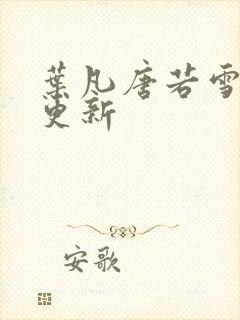 葉凡唐若雪
更新
安歌